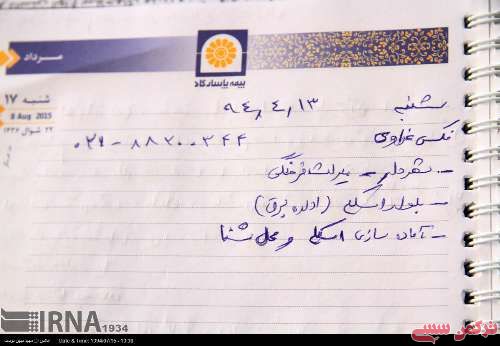 مـرداد
بیمه پاسارگاد
شنبه ۱۷
8 Aug 2015
۲۲ شوال ۱۴۳۶
شنبه ۹۴٫۴٫۱۳
فکس غراوی ۰۲۱-۸۸۲۰۰۳۴۴
- شهرداری - میراث فرهنگی
- بلوار اسکله (اداره برق)
- آماده سازی اسکله و محل شنا
IRNA 1934
ترکمن سسی
Date & Time: 1394/07/15 - 13:30